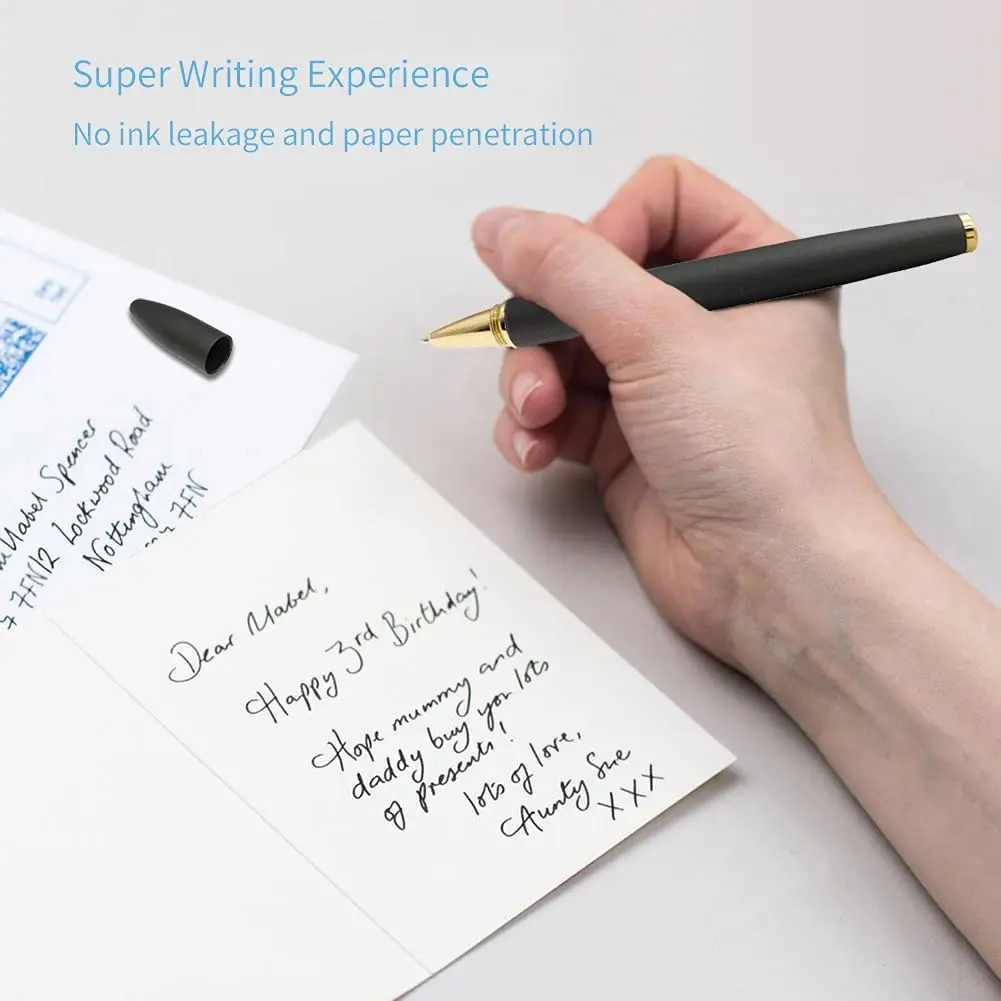 Super Writing Experience
No ink leakage and paper penetration
Mabel Spencer
12 Lockwood Road
Nottingham
7FN
7FN
Dear Mabel,
Happy 3rd Birthday!
Hope mummy and
daddy buy you lots
of presents!
lots of love,
Aunty Sue
XXX